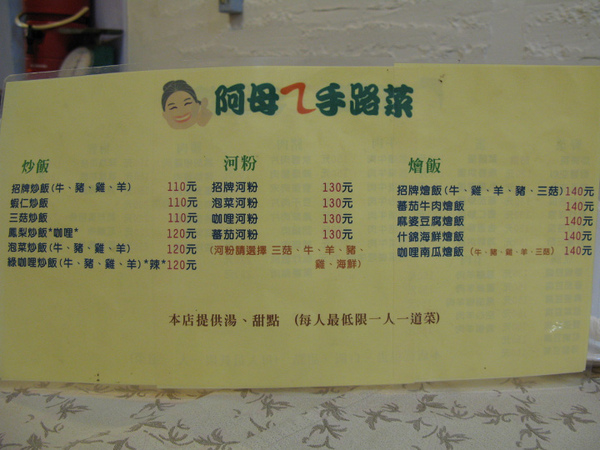 阿母ㄟ手路菜
炒飯
招牌炒飯(牛、豬、雞、羊) 110元
蝦仁炒飯 110元
三菇炒飯 110元
鳳梨炒飯*咖哩* 120元
泡菜炒飯(牛、豬、雞、羊) 120元
綠咖哩炒飯(牛、豬、雞、羊)*辣* 120元
河粉
招牌河粉 130元
泡菜河粉 130元
咖哩河粉 130元
蕃茄河粉 130元
(河粉請選擇 三菇、牛、羊、豬、
雞、海鮮)
燴飯
招牌燴飯(牛、雞、羊、豬、三菇) 140元
蕃茄牛肉燴飯 140元
麻婆豆腐燴飯 140元
什錦海鮮燴飯 140元
咖哩南瓜燴飯 (牛、豬、雞、羊、三菇) 140元
本店提供湯、甜點 (每人最低限一人一道菜)